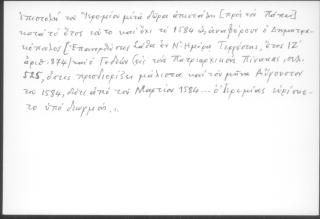 Ἐπιστολὴ τοῦ Ἱερεμίου μετὰ δῶρα ἀπεστάλη [πρὸς τὸν Πάπαν]
κατὰ τὸ ἔτος τοῦτο καὶ ὄχι τὸ 1584 ὡς ἀναφέρουν ὁ Δημητρα-
κόπουλος [Ἐπανορθώσεις Σάθα ἐν Ν. Ἡμέρᾳ Τεργέστης, ἔτος ΙΖ΄
ἀριθ. 874] καὶ ὁ Γεδεὼν [εἰς τοὺς Πατριαρχικοὺς Πίνακας, σελ.
525, ὅστις προσδιορίζει μάλιστα καὶ τὸν μῆνα Αὔγουστον
τοῦ 1584, διότι ἀπὸ τοῦ Μαρτίου 1584... ὁ Ἱερεμίας εὑρίσκε-
το ὑπὸ διωγμόν..